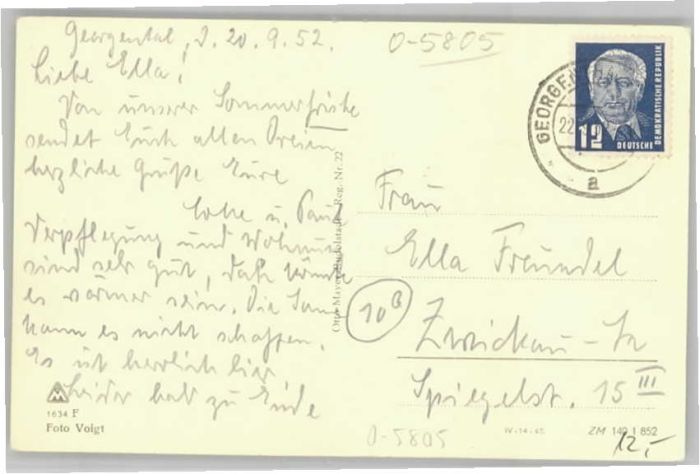 Georgental, d. 20.9.52.
Liebe Ella!
Von unserer Sommerfrische
sendet Euch allen Dreien
herzliche Grüße Eure
Lotte u. Paul
Verpflegung und Wohnung
sind sehr gut, daß könnte
es wärmer sein. Die Sonne
kann es nicht schaffen.
Es ist herrlich hier
Leider bald zu Ende
1634 F
Foto Voigt
Reg. Nr. 22
0-5805
GEORGEN
22
a
12
DEUTSCHE
DEMOKRATISCHE REPUBLIK
Frau
Ella Freundel
10B
Zwickau - Sa
Spiegelst. 15 III
0-5805
W-14-45
ZM 149 1 852
12,-